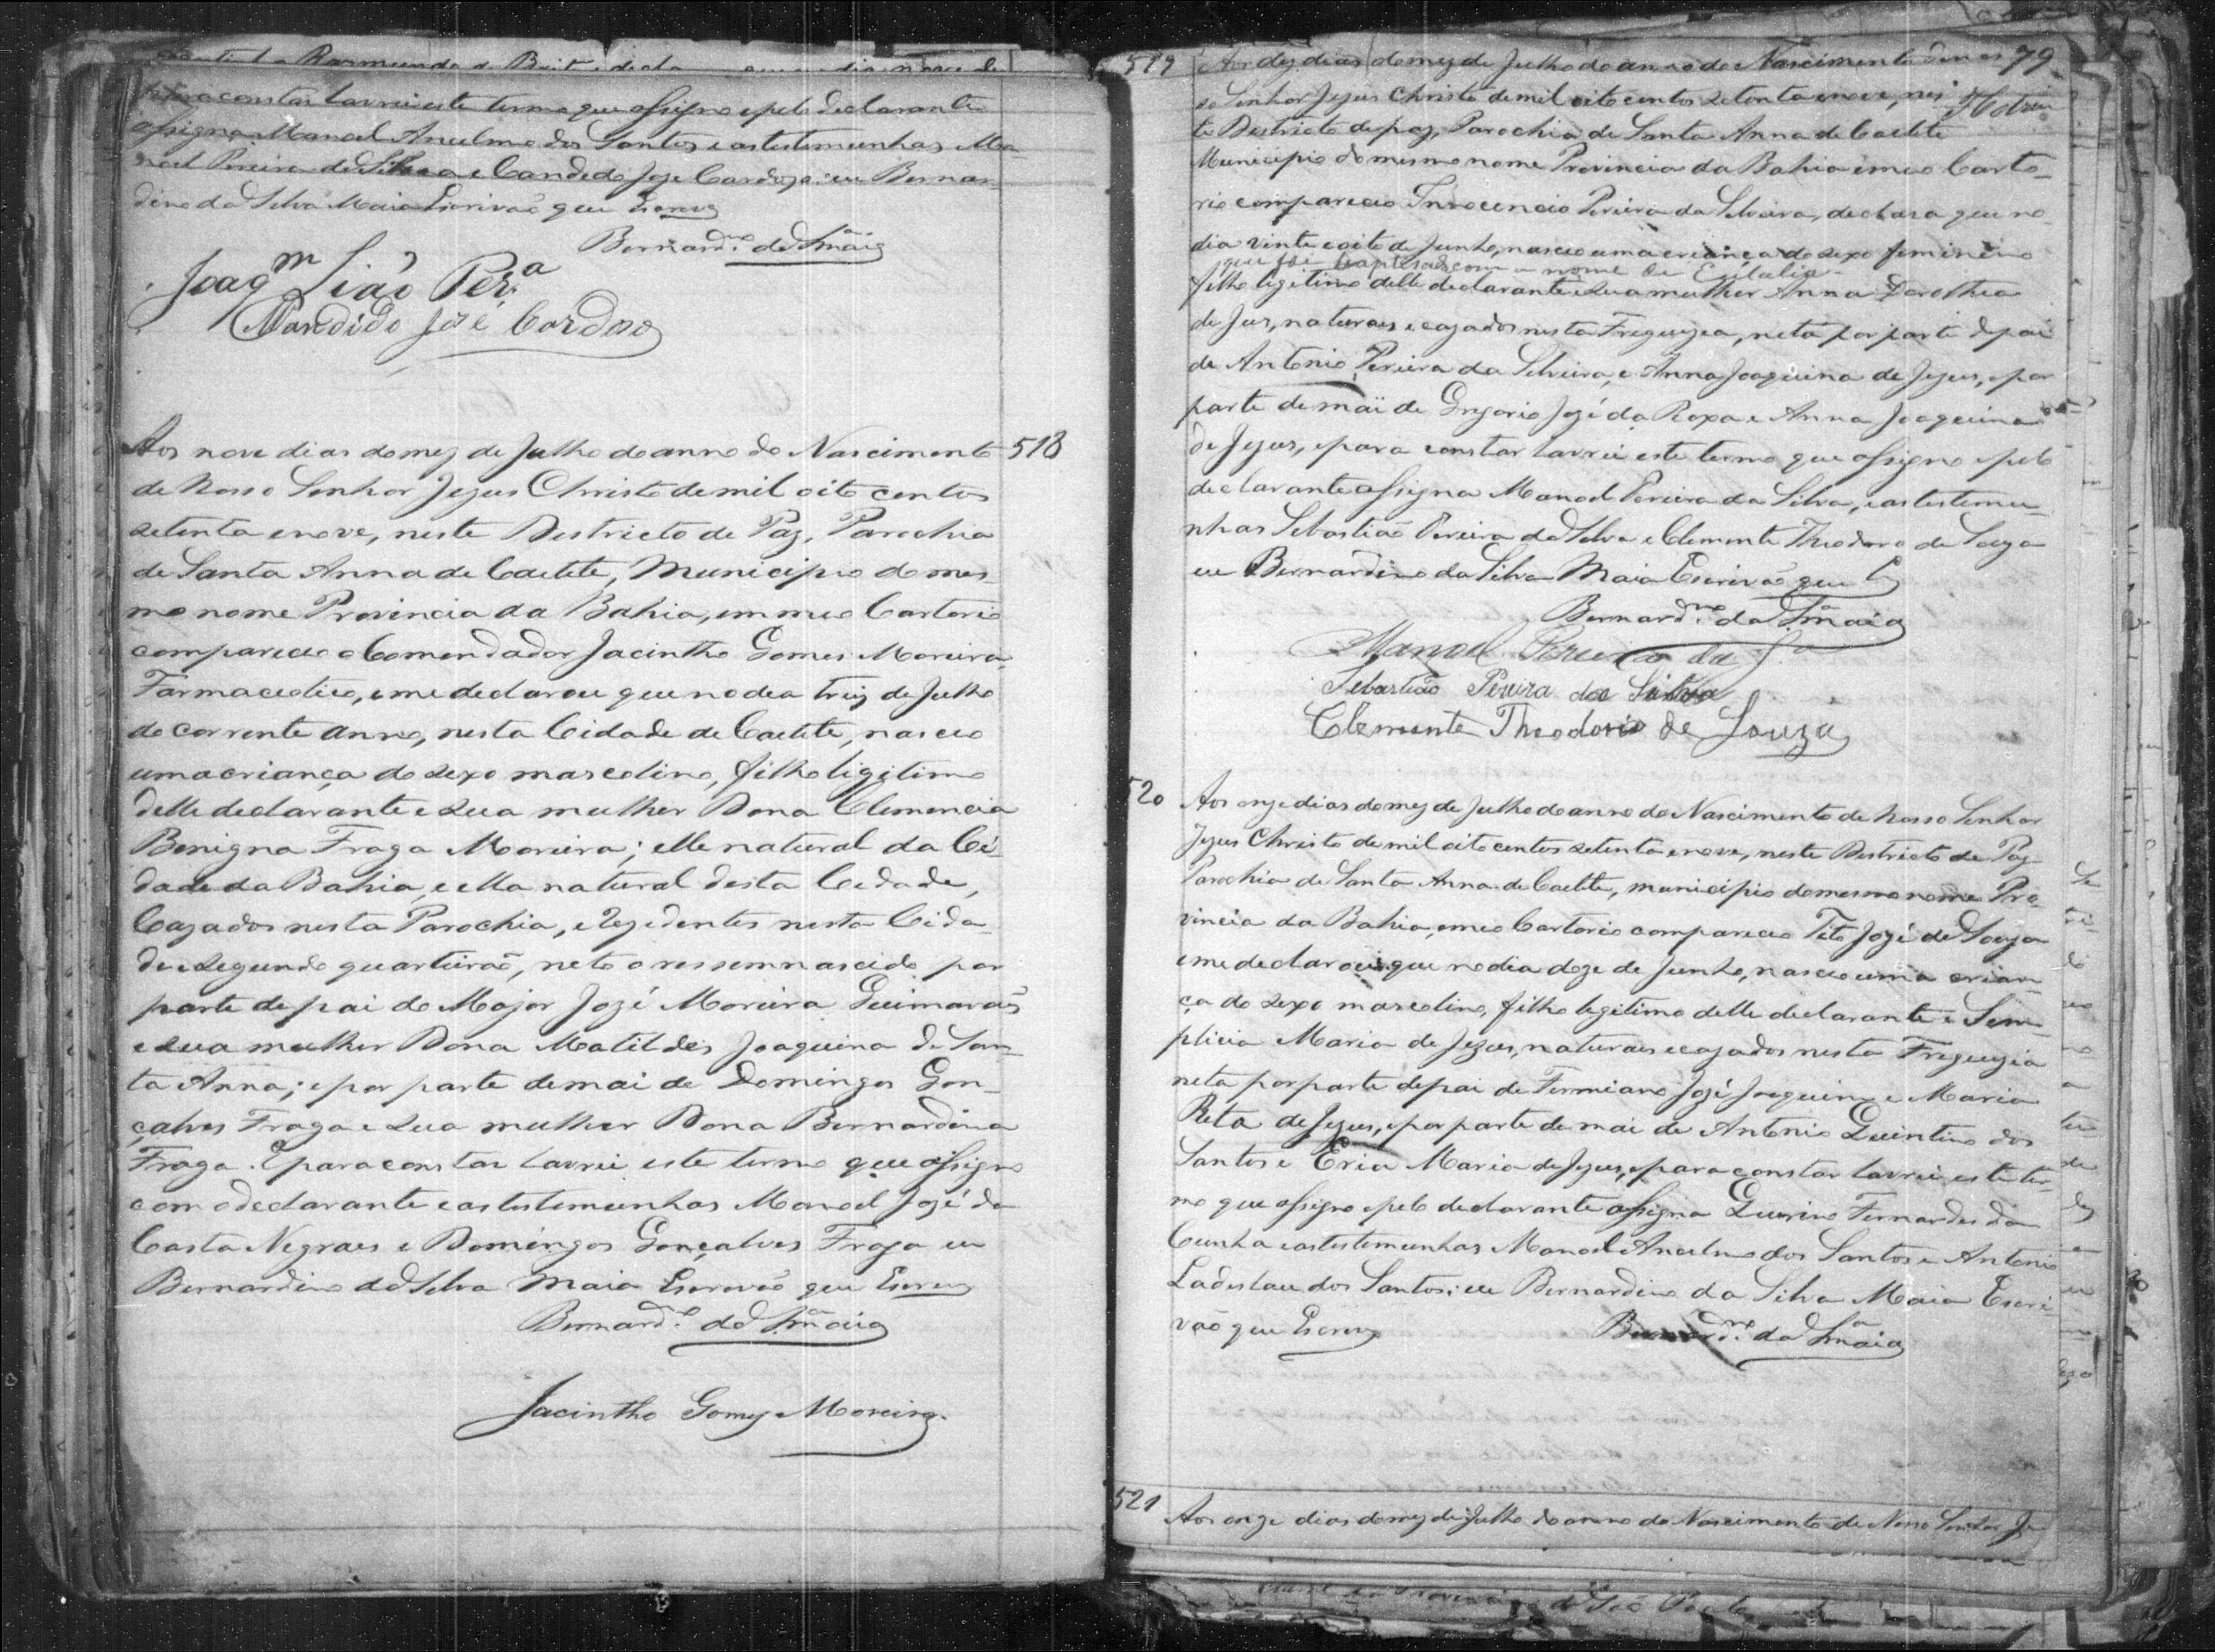 para constar lavrei este termo que assigno e pelo declarante
assigna Manoel Anselmo dos Santos e as testemunhas Ma-
noel Pereira da Silva e Candido Joze Cardozo: eu Bernar-
dino da Silva Maia Escrivaõ que Escrevy
Bernard.no da S.a Maia
Joaq.m Liaõ Per.a
Candido José Cardozo
518
Aos nove dias do mez de Julho do anno do Nascimento
de Nosso Senhor Jezus Christo de mil oito centos
setenta e nove, neste Destricto de Paz, Parochia
de Santa Anna de Caetite, Municipio do mes-
mo nome Provincia da Bahia, em meo Cartorio
compareceo o Comendador Jacintho Gomes Moreira
Farmaceotico, e me declarou que no dia treis de Julho
do corrente anno, nesta Cidade de Caetite, nasceo
uma criança do sexo mascolino, filho ligitimo
delle declarante e sua mulher Dona Clemencia
Benigna Fraga Moreira; elle natural da Ci-
dade da Bahia, e ella natural desta Cidade,
Cazados nesta Parochia, e rezidentes nesta Cida-
de e segundo quarteiraõ, neto o ressemnascido por
parte de pai do Major Jozé Moreira Guimaraẽs
e sua mulher Dona Matildes Joaquina de San-
ta Anna; e por parte de mai de Domingos Gon-
çalves Fraga e sua mulher Dona Bernardina
Fraga. E para constar lavrei este termo que assigno
com o declarante e as testemunhas Manoel Jozé da
Costa Negraes e Domingos Gonçalves Fraga eu
Bernardino da Silva Maia Escrivaõ que Escrevy
Bernard.no da S.a Maia
Jacintho Gomes Moreira
79
519
Aos dez dias do mez de Julho do anno do Nascimento de nos-
so Senhor Jezus Christo de mil oito centos setenta e nove, nes-
te Destricto de paz, Parochia de Santa Anna de Caetite
Municipio do mesmo nome Provincia da Bahia em meo Carto-
rio compareceo Innocencio Pereira da Silveira, declara que no
dia vinte e oito de Junho, nasceo uma criança do sexo feminino
que foi baptisada com o nome de Eulalia
filha ligitima delle declarante e sua mulher Anna Dorothea
de Jezus, naturaes e cazados nesta Freguezia, neta por parte de pai
de Antonio Pereira da Silveira, e Anna Joaquina de Jezus, e por
parte de mai de Gregorio Jozé da Roxa e Anna Joaquina
de Jezus, e para constar lavrei este termo que assigno e pelo
declarante assigna Manoel Pereira da Silva, e as testemu-
nhas Sebastiaõ Pereira da Silva e Clemente Theodoro de Souza
eu Bernardino da Silva Maia Escrivaõ que E
Bernard.no da S.a Maia
Manoel Pereira da S.a
Sebastião Pereira da Silva
Clemente Theodorio de Souza
520
Aos onze dias do mez de Julho do anno do Nascimento de Nosso Senhor
Jezus Christo de mil oito centos setenta e nove, neste Destricto de Paz
Parochia de Santa Anna de Caetite, municipio do mesmo nome Pro-
vincia da Bahia, e meo Cartorio compareceo Tito Jozé de Souza
e me declarou que no dia doze de Junho, nasceo uma crian-
ça do sexo mascolino, filho legitimo delle declarante e Sim-
plicia Maria de Jezus, naturaes e cazados nesta Freguezia
neta por parte de pai de Firmiano Jozé Joaquim e Maria
Rita de Jezus, e por parte de mai de Antonio Quintino dos
Santos e Eria Maria de Jezus, e para constar lavrei este ter-
mo que assigno e pelo declarante assigna Guerino Fernandes da
Cunha e as testemunhas Manoel Anselmo dos Santos e Antonio
Ladeslau dos Santos: eu Bernardino da Silva Maia Escri-
vão que Escrevy
Bernard.no da S.a Maia
521
Aos onze dias do mez de Julho do anno do Nascimento de Nosso Senhor Je-